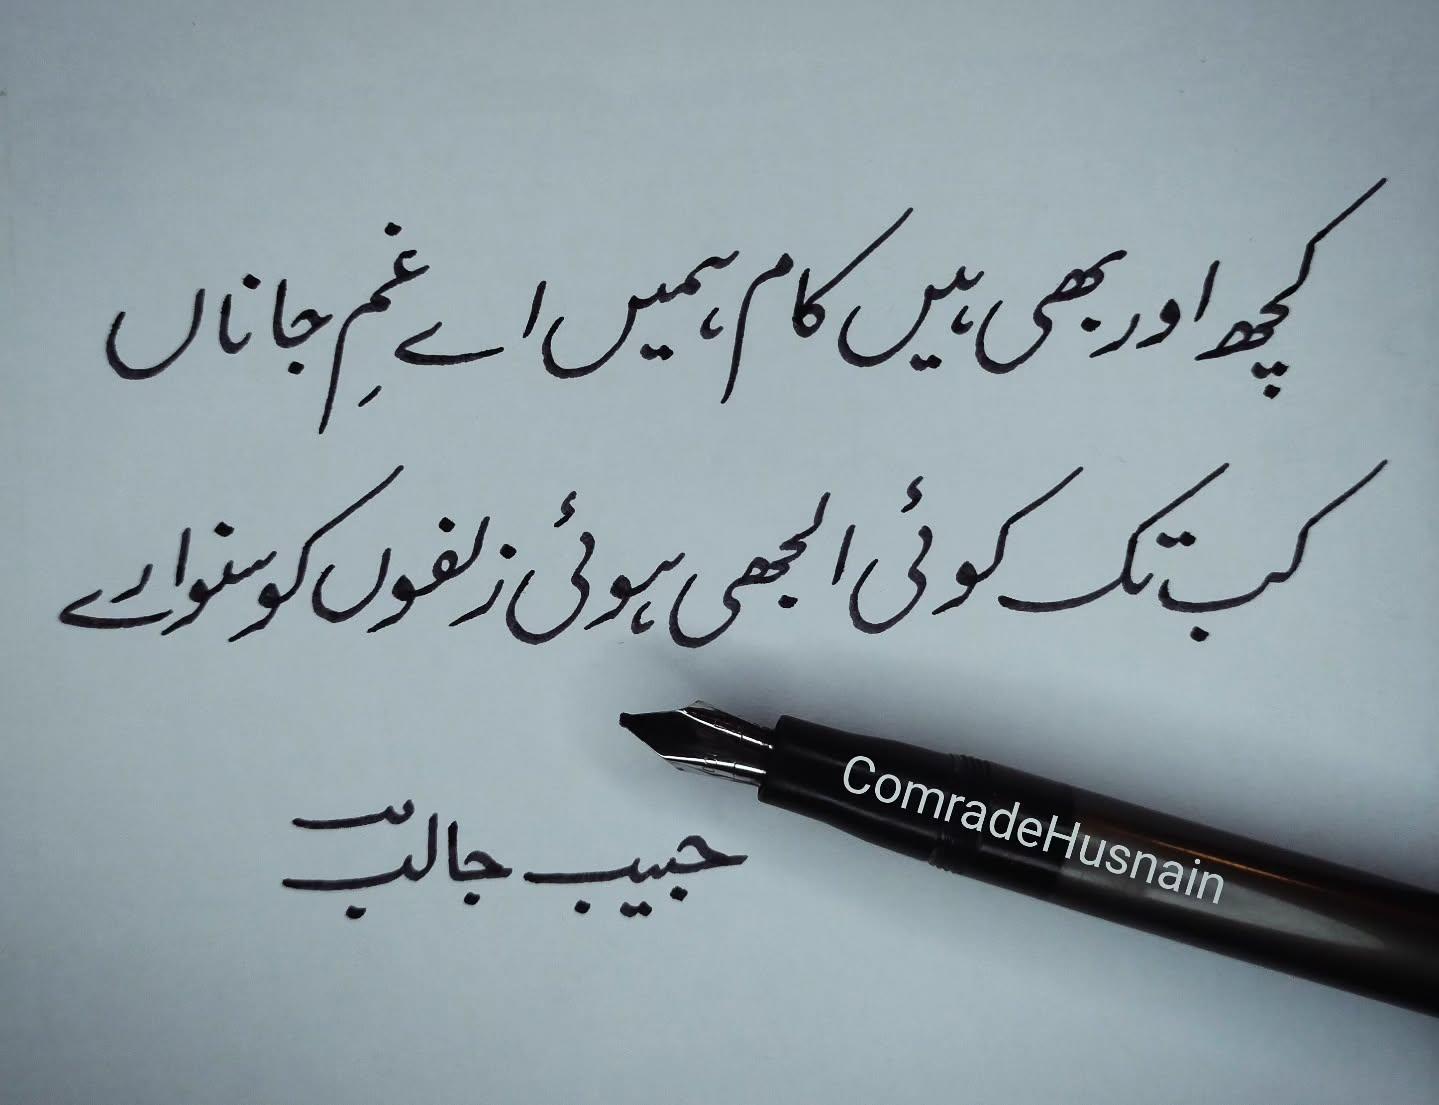 کچھ اور بھی ہیں کام ہمیں اے غمِ جاناں
کب تک کوئی الجھی ہوئی زلفوں کو سنوارے
حبیب جالب
ComradeHusnain